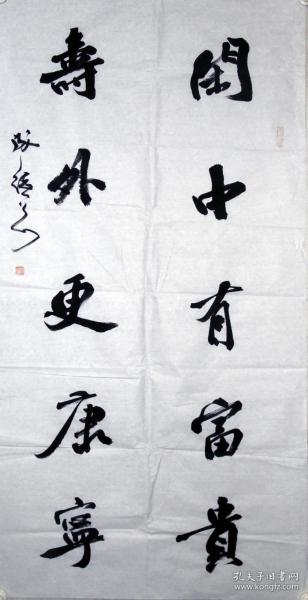 閑中有富貴
壽外更康寧
孔夫子旧书网
www.kongfz.com